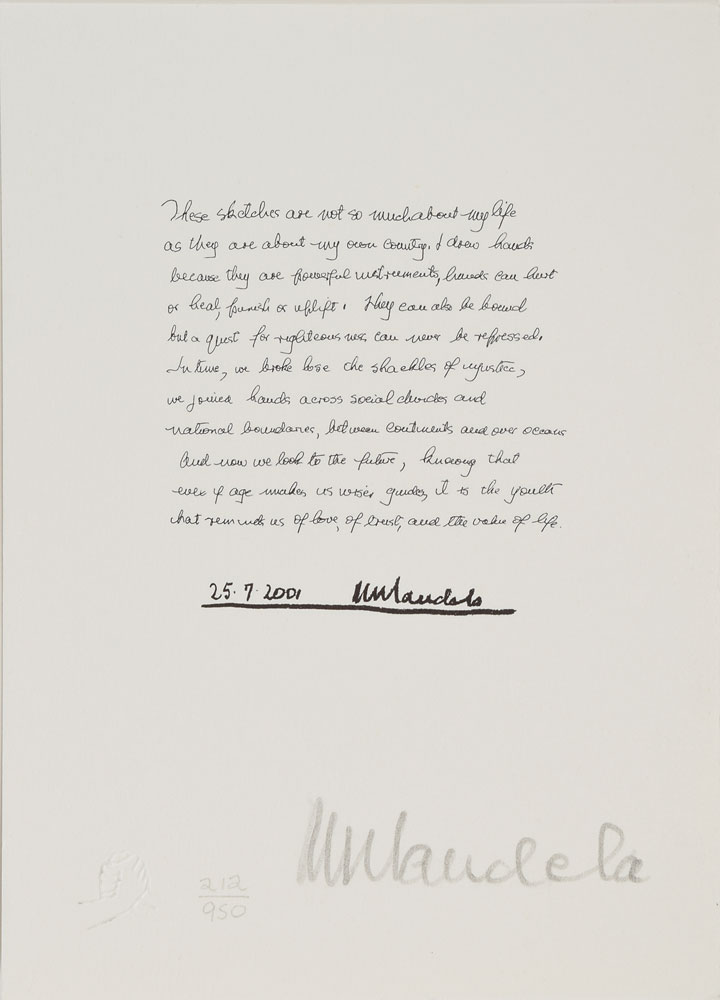 These sketches are not so much about my life
as they are about my own country. I drew hands
because they are powerful instruments, hands can hurt
or heal, punish or uplift. They can also be bound
but a quest for righteousness can never be repressed.
In time, we broke lose the shackles of injustice,
we joined hands across social divides and
national boundaries, between continents and over oceans
And now we look to the future, knowing that
even if age makes us wiser guides, it is the youth
that reminds us of love, of trust, and the value of life.
25.7.2001 NMandela
NMandela
212
950